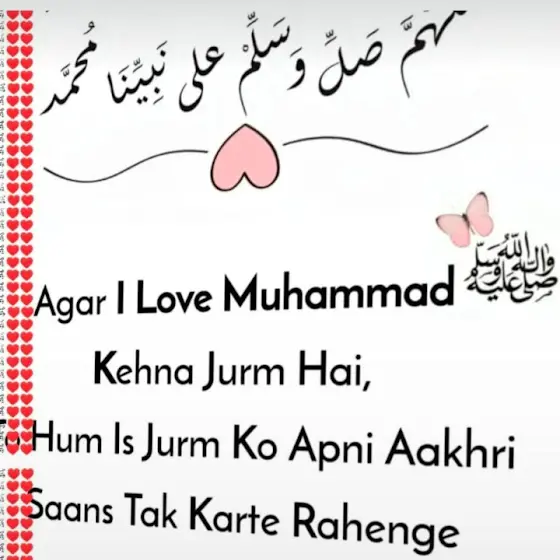 صَلِّ وَسَلِّمْ على نَبِيِّنَا مُحمَّد
Agar I Love Muhammad ﷺ
Kehna Jurm Hai,
Hum Is Jurm Ko Apni Aakhri
Saans Tak Karte Rahenge